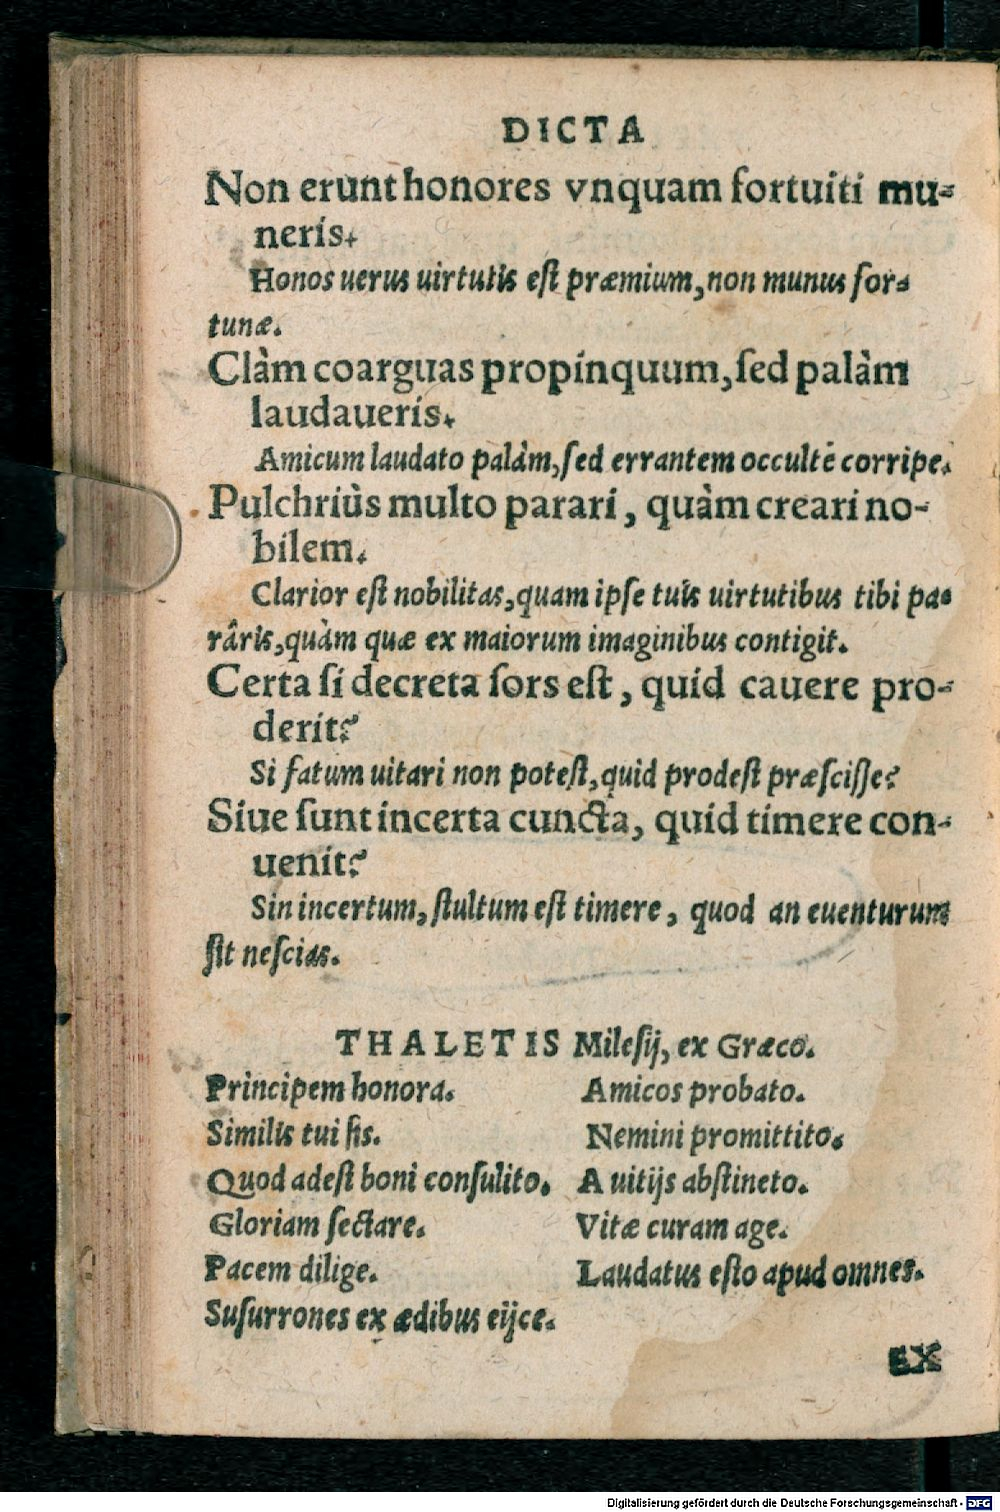 DICTA
Non erunt honores vnquam fortuiti mu-
neris.
Honos uerus uirtutis est præmium, non munus for-
tunæ.
Clàm coarguas propinquum, sed palàm
laudaueris.
Amicum laudato palàm, sed errantem occultè corripe.
Pulchriùs multo parari, quàm creari no-
bilem.
Clarior est nobilitas, quam ipse tuis uirtutibus tibi pa-
râris, quàm quæ ex maiorum imaginibus contigit.
Certa si decreta sors est, quid cauere pro-
derit?
Si fatum uitari non potest, quid prodest præscisse?
Siue sunt incerta cuncta, quid timere con-
uenit?
Sin incertum, stultum est timere, quod an euenturum
sit nescias.
THALETIS Milesij, ex Græco.
Principem honora.
Similis tui sis.
Quod adest boni consulito.
Gloriam sectare.
Pacem dilige.
Susurrones ex ædibus eijce.
Amicos probato.
Nemini promittito.
A uitijs abstineto.
Vitæ curam age.
Laudatus esto apud omnes.
EX
Digitalisierung gefördert durch die Deutsche Forschungsgemeinschaft - DFG